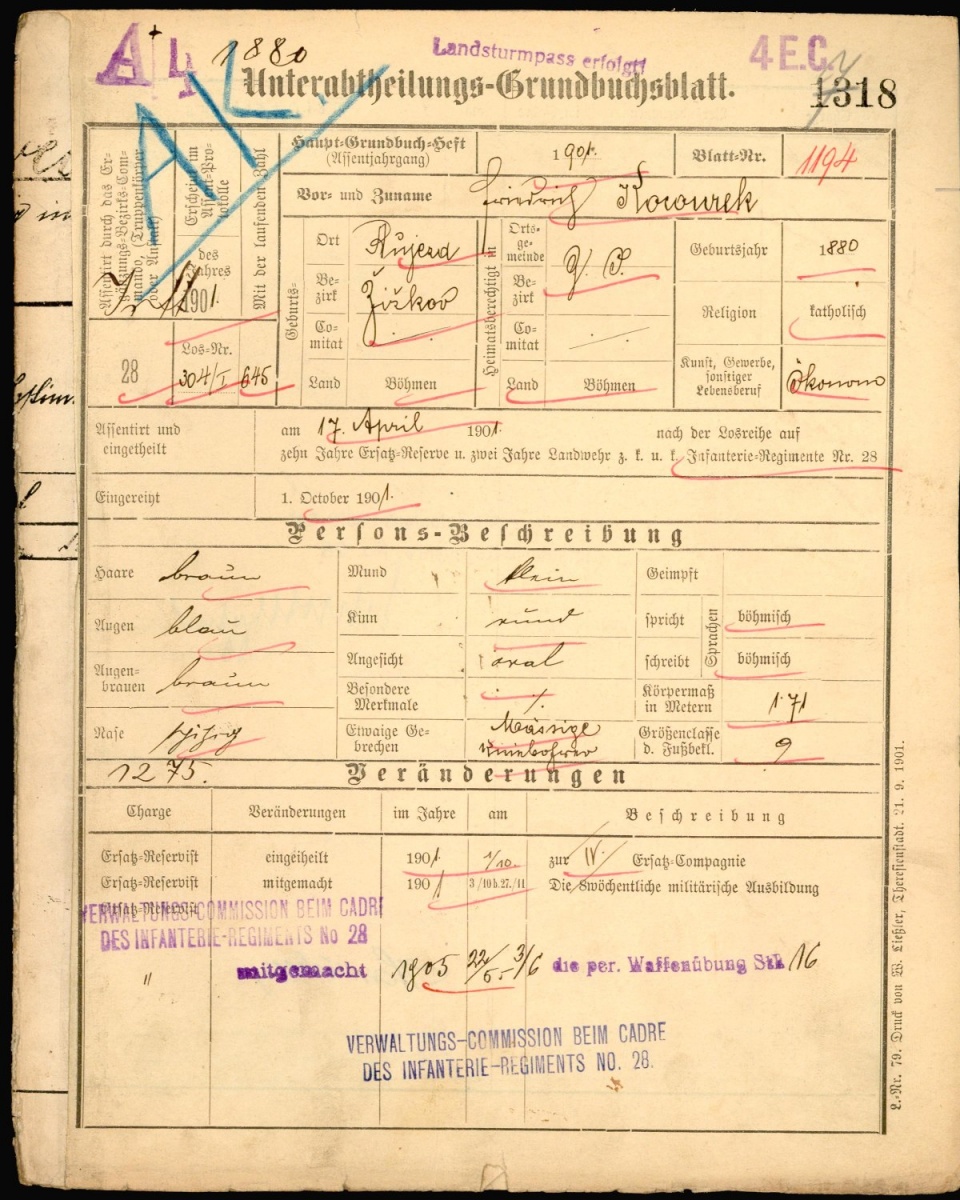 A 4 1880 Landsturmpass erfolgt! 4 E.C.
Unterabtheilungs-Grundbuchsblatt. 1318
AL
Assentirt durch das Ergänzungs-Bezirks-Commando, (Truppenkörper oder Anstalt)
Erscheint im Assent-Protokolle
des Jahres
1901.
Mit der laufenden Zahl
28
Los-Nr.
304/I
645
Haupt-Grundbuch-Heft
(Assentjahrgang)
1901.
Blatt-Nr. 1194
Vor- und Zuname Friedrich Kocourek
Geburts-
Ort Aujezd
Bezirk Žižkov
Comitat
Land Böhmen
Heimatsberechtigt in
Ortsgemeinde
Bezirk
Comitat
Land Böhmen
Geburtsjahr 1880
Religion katholisch
Kunst, Gewerbe, sonstiger Lebensberuf Ökonom
Assentirt und
eingetheilt
am 17. April 1901. nach der Losreihe auf
zehn Jahre Ersatz-Reserve u. zwei Jahre Landwehr z. k. u. k. Infanterie-Regimente Nr. 28
Eingereiht 1. October 1901.
Persons-Beschreibung
Haare braun
Augen blau
Augenbrauen braun
Nase spitzig
Mund klein
Kinn rund
Angesicht oval
Besondere Merkmale ./.
Etwaige Gebrechen Mässige
Kniebohrer
Geimpft
Sprachen
spricht böhmisch
schreibt böhmisch
Körpermaß in Metern 1·71
Größenclasse d. Fußbekl. 9
1275.
Veränderungen
Charge Veränderungen im Jahre am Beschreibung
Ersatz-Reservist eingeiheilt 1901. 1/10. zur IV. Ersatz-Compagnie
Ersatz-Reservist mitgemacht 1901 3/10 b. 27./11 Die 8wöchentliche militärische Ausbildung
Ersatz-Reservist
VERWALTUNGS-COMMISSION BEIM CADRE
DES INFANTERIE-REGIMENTS No 28
" mitgemacht 1905 22/5-3/6 die per. Waffenübung Stk. 16
VERWALTUNGS-COMMISSION BEIM CADRE
DES INFANTERIE-REGIMENTS NO. 28.
L.-Nr. 79. Druck von W. Ließler, Theresienstadt. 21. 9. 1901.